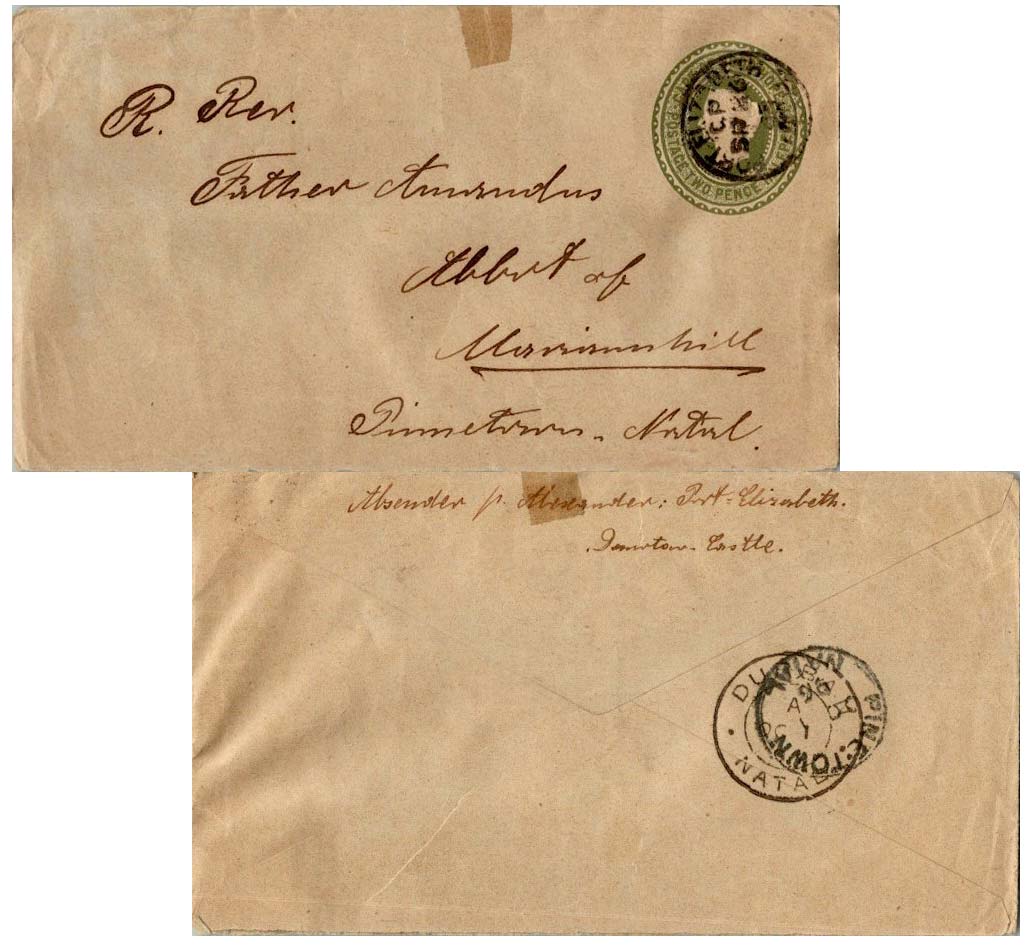 R. Rev.
Father Amandus
Abbot of
Mariannhill
Pinetown - Natal.
POSTAGE TWO PENCE
PORT ELIZABETH
CP
SP
Absender p. Alexander: Port-Elizabeth.
Castle.
DURBAN
A
OC 1
NATAL
PINETOWN
NATAL